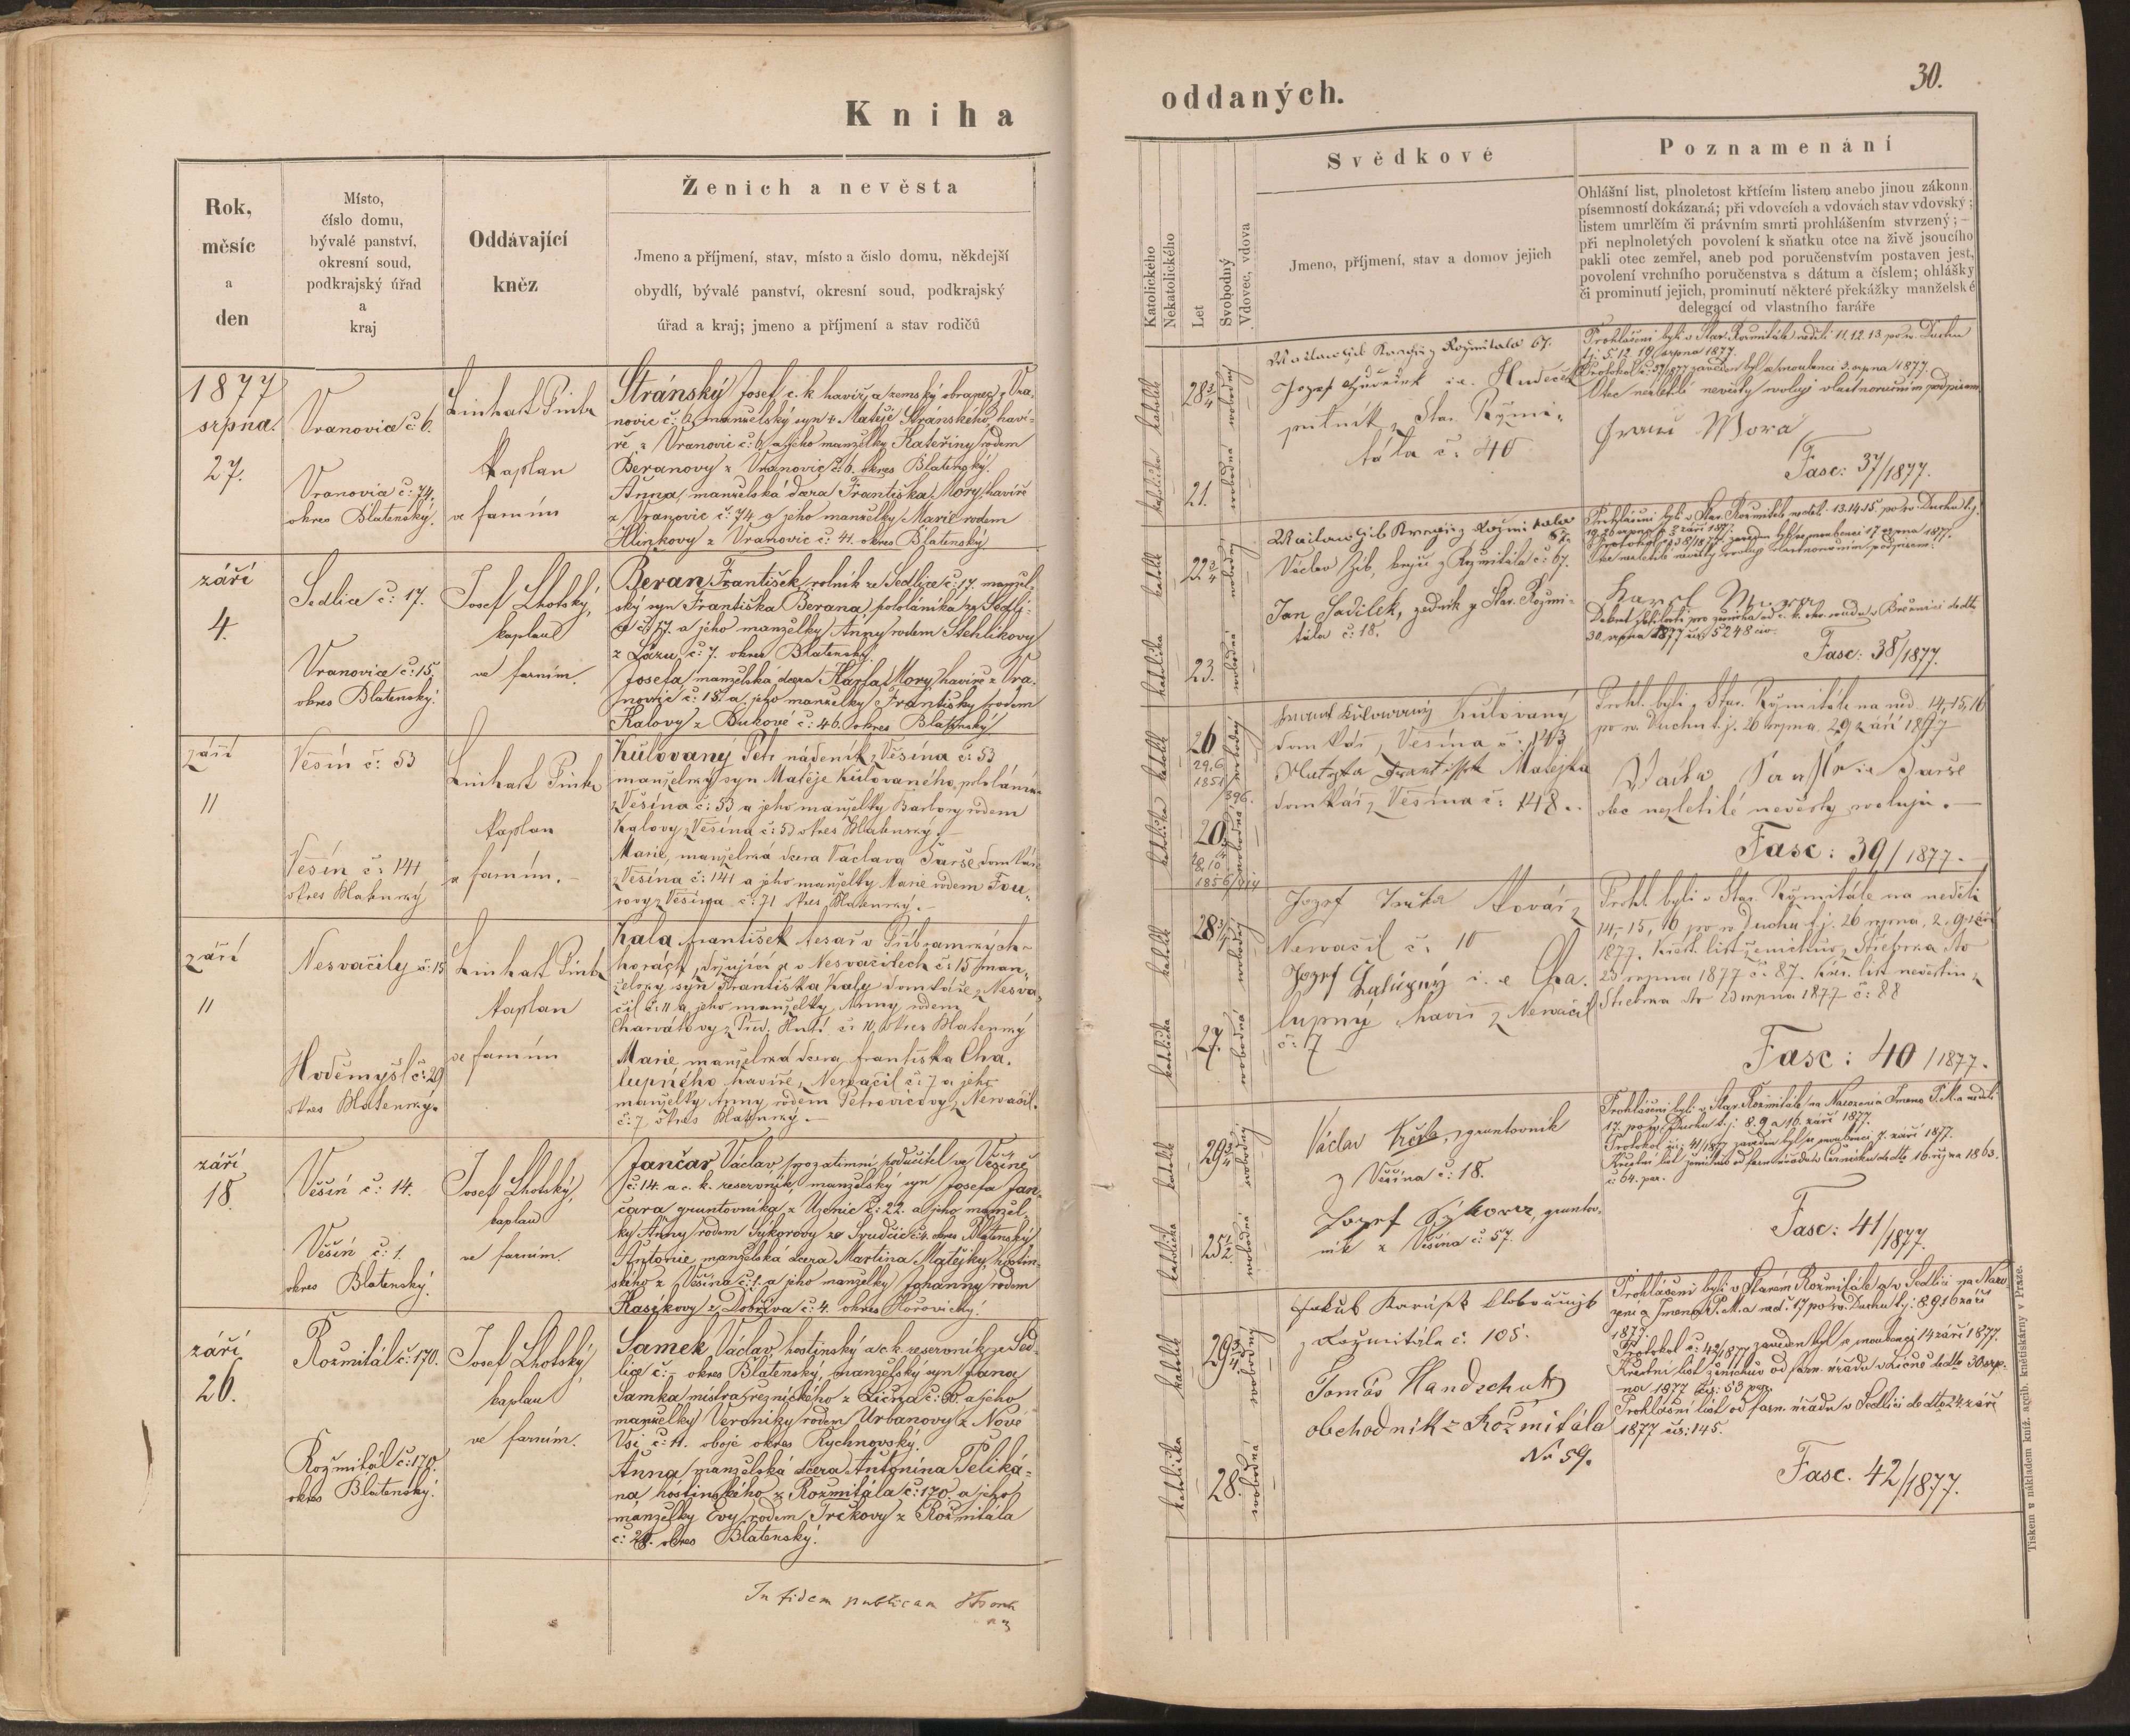 Kniha
Rok,
měsíc
a
den
Místo,
číslo domu,
bývalé panství,
okresní soud,
podkrajský úřad
a
kraj
Oddávající
kněz
Ženich a nevěsta
Jmeno a příjmení, stav, místo a čislo domu, někdejší
obydlí, bývalé panství, okresní soud, podkrajský
úřad a kraj; jmeno a příjmení a stav rodičů
1877
srpna.
27.
Vranovice č: 6.
Vranovice č: 74.
okres Blatenský.
Linhart Pintr
kaplan
ve farním
Stránský Josef c. k. havíř a zemský obranec z Vra-
novic č: 6, manželský syn Matěje Stránského, haví-
ře z Vranovic č: 6 a jeho manželky Kateřiny rodem
Beranovy z Vranovic č: 6. okres Blatenský.
Anna, manželská dcera Františka Mory, havíře
z Vranovic č: 74 a jeho manželky Marie rodem
Hlinkovy z Vranovic č: 41. okres Blatenský
září
4.
Sedlice č: 17.
Vranovice č: 15.
okres Blatenský.
Josef Lhotský,
kaplan
ve farním.
Beran František, rolník ze Sedlice č: 17. manžel-
ský syn Františka Berana, pololáníka ze Sedli-
ce č: 17. a jeho manželky Anny rodem Stehlíkovy
z Lázu č: 7. okres Blatenský.
Josefa, manželská dcera Karla Mory, havíře z Vra-
novic č: 15. a jeho manželky Františky rodem
Kalovy z Bukové č: 46. okres Blatenský
září
11
Věšín č: 53
Vešín č: 141
okres Blatenský
Linhart Pintr
kaplan
ve farním.
Kůlovaný Petr nádeník z Věšína č: 53
manželský syn Matěje Kůlovaného, pololáníka
z Věšína č: 53 a jeho manželky Barbory rodem
Kalovy z Věšína č: 53 okres Blatenský.
Marie, manželská dcera Václava Parše domkáře
z Vešína č: 141 a jeho manželky Marie rodem Fou-
sovy z Vešína č: 71 okres Blatenský.
září
11
Nesvačily č: 15
Hoděmyšl č: 29
okres Blatenský.
Linhart Pintr
kaplan
ve farním
Kala František tesař v Příbramských
horách, zdržující se v Nesvačilech č: 15 man-
želský syn Františka Kaly domkáře z Nesva-
čil č: 11 a jeho manželky Anny rodem
Charvátovy z Před. Hutí č: 10, okres Blatenský
Marie, manželská dcera Františka Cha-
lupného havíře z Nesvačil č: 7 a jeho
manželky Anny rodem Petrovicovy z Nesvačil
č: 7 okres Blatenský.
září
18.
Věšín č: 14.
Věšín č: 1.
okres Blatenský.
Josef Lhotský,
kaplan
ve farním.
Jančar Václav, prozatimní podučitel ve Věšíně
č: 14. a c. k. reservník, manželský syn Josefa Jan-
čara gruntovníka z Uzenic č: 22. a jeho manžel-
ky Anny rodem Sýkorovy ze Svučic č: 4. okres Blatenský
Antonie, manželská dcera Martina Matějky, hostin-
ského z Věšína č: 1. a jeho manželky Johanny rodem
Kasíkovy z Dobříva č: 4. okres Hořovický.
září
26.
Rožmitál č: 170.
Rožmitál č: 170.
okres Blatenský.
Josef Lhotský
kaplan
ve farním.
Samek Václav, hostinský a c. k. reservník ze Sed-
lice č: - okres Blatenský, manželský syn Jana
Samka, mistra řeznického z Lična č: 60. a jeho
manželky Veroniky rodem Urbanovy z Nové
Vsi č: 11. oboje okres Rychnovský.
Anna, manželská dcera Antonína Peliká-
na, hostinského z Rožmitála č: 170 a jeho
manželky Evy rodem Trčkovy z Rožmitála
č: 28. okres Blatenský.
In fidem publicam
oddaných.
30.
Katolického
Nekatolického
Let
Svobodný
Vdovec, vdova
Svědkové
Jmeno, příjmení, stav a domov jejich
Poznamenání
Ohlášní list, plnoletost křtícím listem anebo jinou zákonn.
písemností dokázaná; při vdovcích a vdovách stav vdovský;
listem umrlčím či právním smrti prohlášením stvrzený; –
při neplnoletých povolení k sňatku otce na živě jsoucího
pakli otec zemřel, aneb pod poručenstvím postaven jest,
povolení vrchního poručenstva s dátum a číslem; ohlášky
či prominutí jejich, prominutí některé překážky manželské
delegací od vlastního faráře
katolík
28 3/4
svobodný
katolička
21.
svobodná
z Rožmitala 67.
Jozef Hudeček
z Star. Rožmi-
tála č: 40
Prohlášeni byli v Star. Rožmitále neděli 11. 12. 13. po sv. Duchu
t.j. 5. 12. 19. srpna 1877.
Protokol č: 37/1877 zaveden byl se snoubenci 3. srpna 1877.
Otec nezletilé nevěsty svoluje vlastnoručním podpisem.
Mora
Fasc: 37/1877.
katolík
22 3/4
svobodný
katolička
23.
svobodná
Václav Zíb, krejčí z Rožmitála č: 67.
Jan Sadílek, zedník z Star. Rožmi-
tála č: 18.
Prohlášeni byli v Star. Rožmitále neděli 13. 14. 15. po sv. Duchu t.j.
Karel Mora
30. srpna 1877 čís: 5248 civ.
Fasc: 38/1877.
katolík
26
29.6
1851
/396.
svobodný
katolička
20
svobodná
Kůlovaný
domkář z Vešína č: 143
Matějka
domkář z Vešína č: 148.
Prohl. byli v Star. Rožmitále na ned. 14, 15, 16
po sv. Duchu t.j. 26 srpna, 2 9 září 1877
otec nezletilé nevěsty svoluje.
Fasc: 39/1877.
katolík
28
svobodný
katolička
27.
svobodná
Jozef Trčka kovář z
Nesvačil č: 10
Jozef Chalúpný i. e. Cha-
lupný havíř z Nesvačil
č: 7
Prohl. byli v Star. Rožmitále na neděli
14, 15, 16 po sv. Duchu t.j. 26 srpna, 2. 9. září
1877. Křest. list ženichův z Střebska dto
23 srpna 1877 č: 87. Křes. list nevěstin z
Střebska dto 23 srpna 1877 č: 88
Fasc: 40/1877.
katolík
29 3/4
svobodný
katolička
25 1/2
svobodná
Václav Krčil, gruntovník
z Věšína č: 18.
Jozef Sýkora, gruntov-
ník z Věšína č: 57.
Prohlášeni byli v Star. Rožmitále na Narození a Jmeno P. M. a neděli
17. po sv. Duchu t.j. 8. 9. a 16. září 1877.
Protokol čís: 41/1877 zaveden byl se snoubenci 7. září 1877.
č: 64. par.
Fasc: 41/1877.
katolík
29 3/4
svobodný
katolička
28.
svobodná
Jakub Karásek kloboučník
z Rožmitála č. 105.
Tomáš Handschuh
obchodník z Rožmitála
No 59.
Prohlášeni byli v Starém Rožmitále a v Sedlici na Naro-
zení a Jmeno P. M. a ned: 17 po sv. Duchu t.j: 8 9 16 září
1877.
Protokol č: 42/1877 zaveden byl se snoubenci 14 září 1877.
Křestní list ženichův od farn. úřadu v Ličně de dto 30 srp-
na 1877 čís: 53 par.
Prohlášní list od farn. úřadu v Sedlici de dto 24. září
1877 čís: 145.
Fasc. 42/1877.
Tiskem a nákladem kněž. arcib. knětiskárny v Praze.